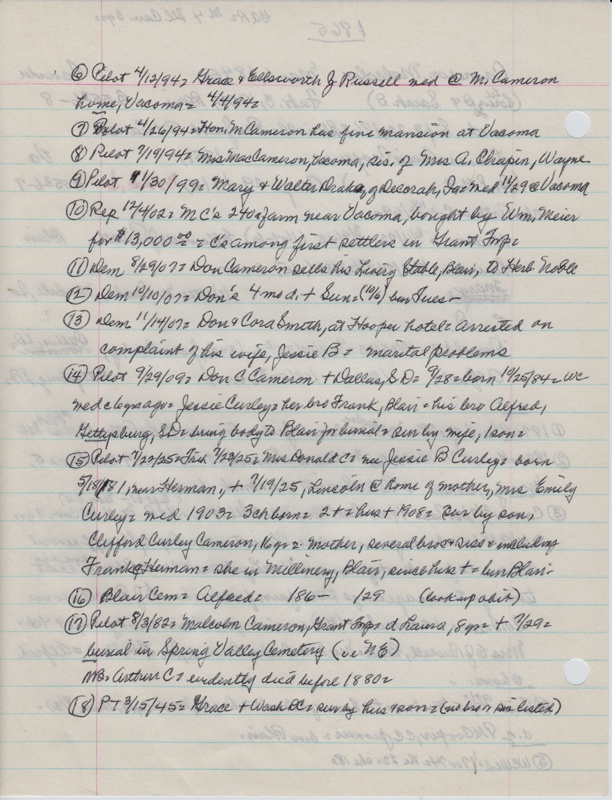 1865
⑥ Pilot 4/12/94= Grace & Ellsworth J Russell med @ M. Cameron
home, Vacoma= 4/4/94=
⑦ Pilot 4/26/94= Hon. M Cameron has fine mansion at Vacoma
⑧ Pilot 7/19/94= Mrs Mac Cameron, Vacoma, sis. of Mrs A. Chapin, Wayne
⑨ Pilot 11/30/99= Mary & Walter Drake, of Decorah, Ia= med 11/29 @ Vacoma
⑩ Rep 12/4/02= MC's 240a farm near Vacoma, bought by Wm, Meier
for $13,000 00 = C's among first settlers in Grant Twp=
⑪ Dem 8/29/07= Don Cameron sells his Livery Stable, Blair, to Herb Noble
⑫ Dem 10/10/07= Don's 4 mo d. + Sun= (10/6) bur Tues-
⑬ Dem 11/14/07= Don & Cora Smith, at Hooper hotel= arrested on
complaint of his wife, Jessie B= marital problems
⑭ Pilot 9/29/09= Don C Cameron + Dallas, SD= 9/28= born 10/25/84= WC
med 6 yrs ago= Jessie Curley= her bro Frank, Blair= his bro Alfred,
Gettysburg, SD= bring body to Blair for burial= sur by wife, 1 son=
⑮ Pilot 7/22/25= 7/23/25= Mrs Donald C= nee Jessie B Curley= born
5/18/71, near Herman, + 7/19/25, Lincoln @ home of mother, Mrs Emily
Curley= med 1903= 3 ch born= 2 += hus + 1908= sur by son,
Clifford Curley Cameron, 16 yr= mother, several bros & sis= including
Frank, Herman= she in Millinery, Blair, since hus += bur Blair-
⑯ Blair Cem= Alfred= 186- 129 (look up obit)
⑰ Pilot 8/3/82= Malcolm Cameron, Grant Twp= d Laura, 8 yr= + 7/29=
burial in Spring Valley Cemetery (in NE)
NB= Arthur C= evidently died before 1880=
⑱ PT 3/15/45= Grace + Wash DC= sur by hus & son= (no bro or sis listed)